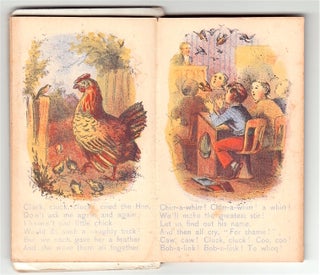 Cluck, cluck, cluck! cried the Hen,
Don't ask me again and again,
I haven't one little chick
Would do such a naughty trick!
But we each gave her a feather
And she wove them all together.
Chirr-a-whirr! Chirr-a-whirr! a whirr!
We'll make the greatest stir!
Let us find out his name,
And then all cry, "For shame!"
Caw, caw! Cluck, cluck! Coo, coo!
Bob-a-link! Bob-a-link! To whoo!